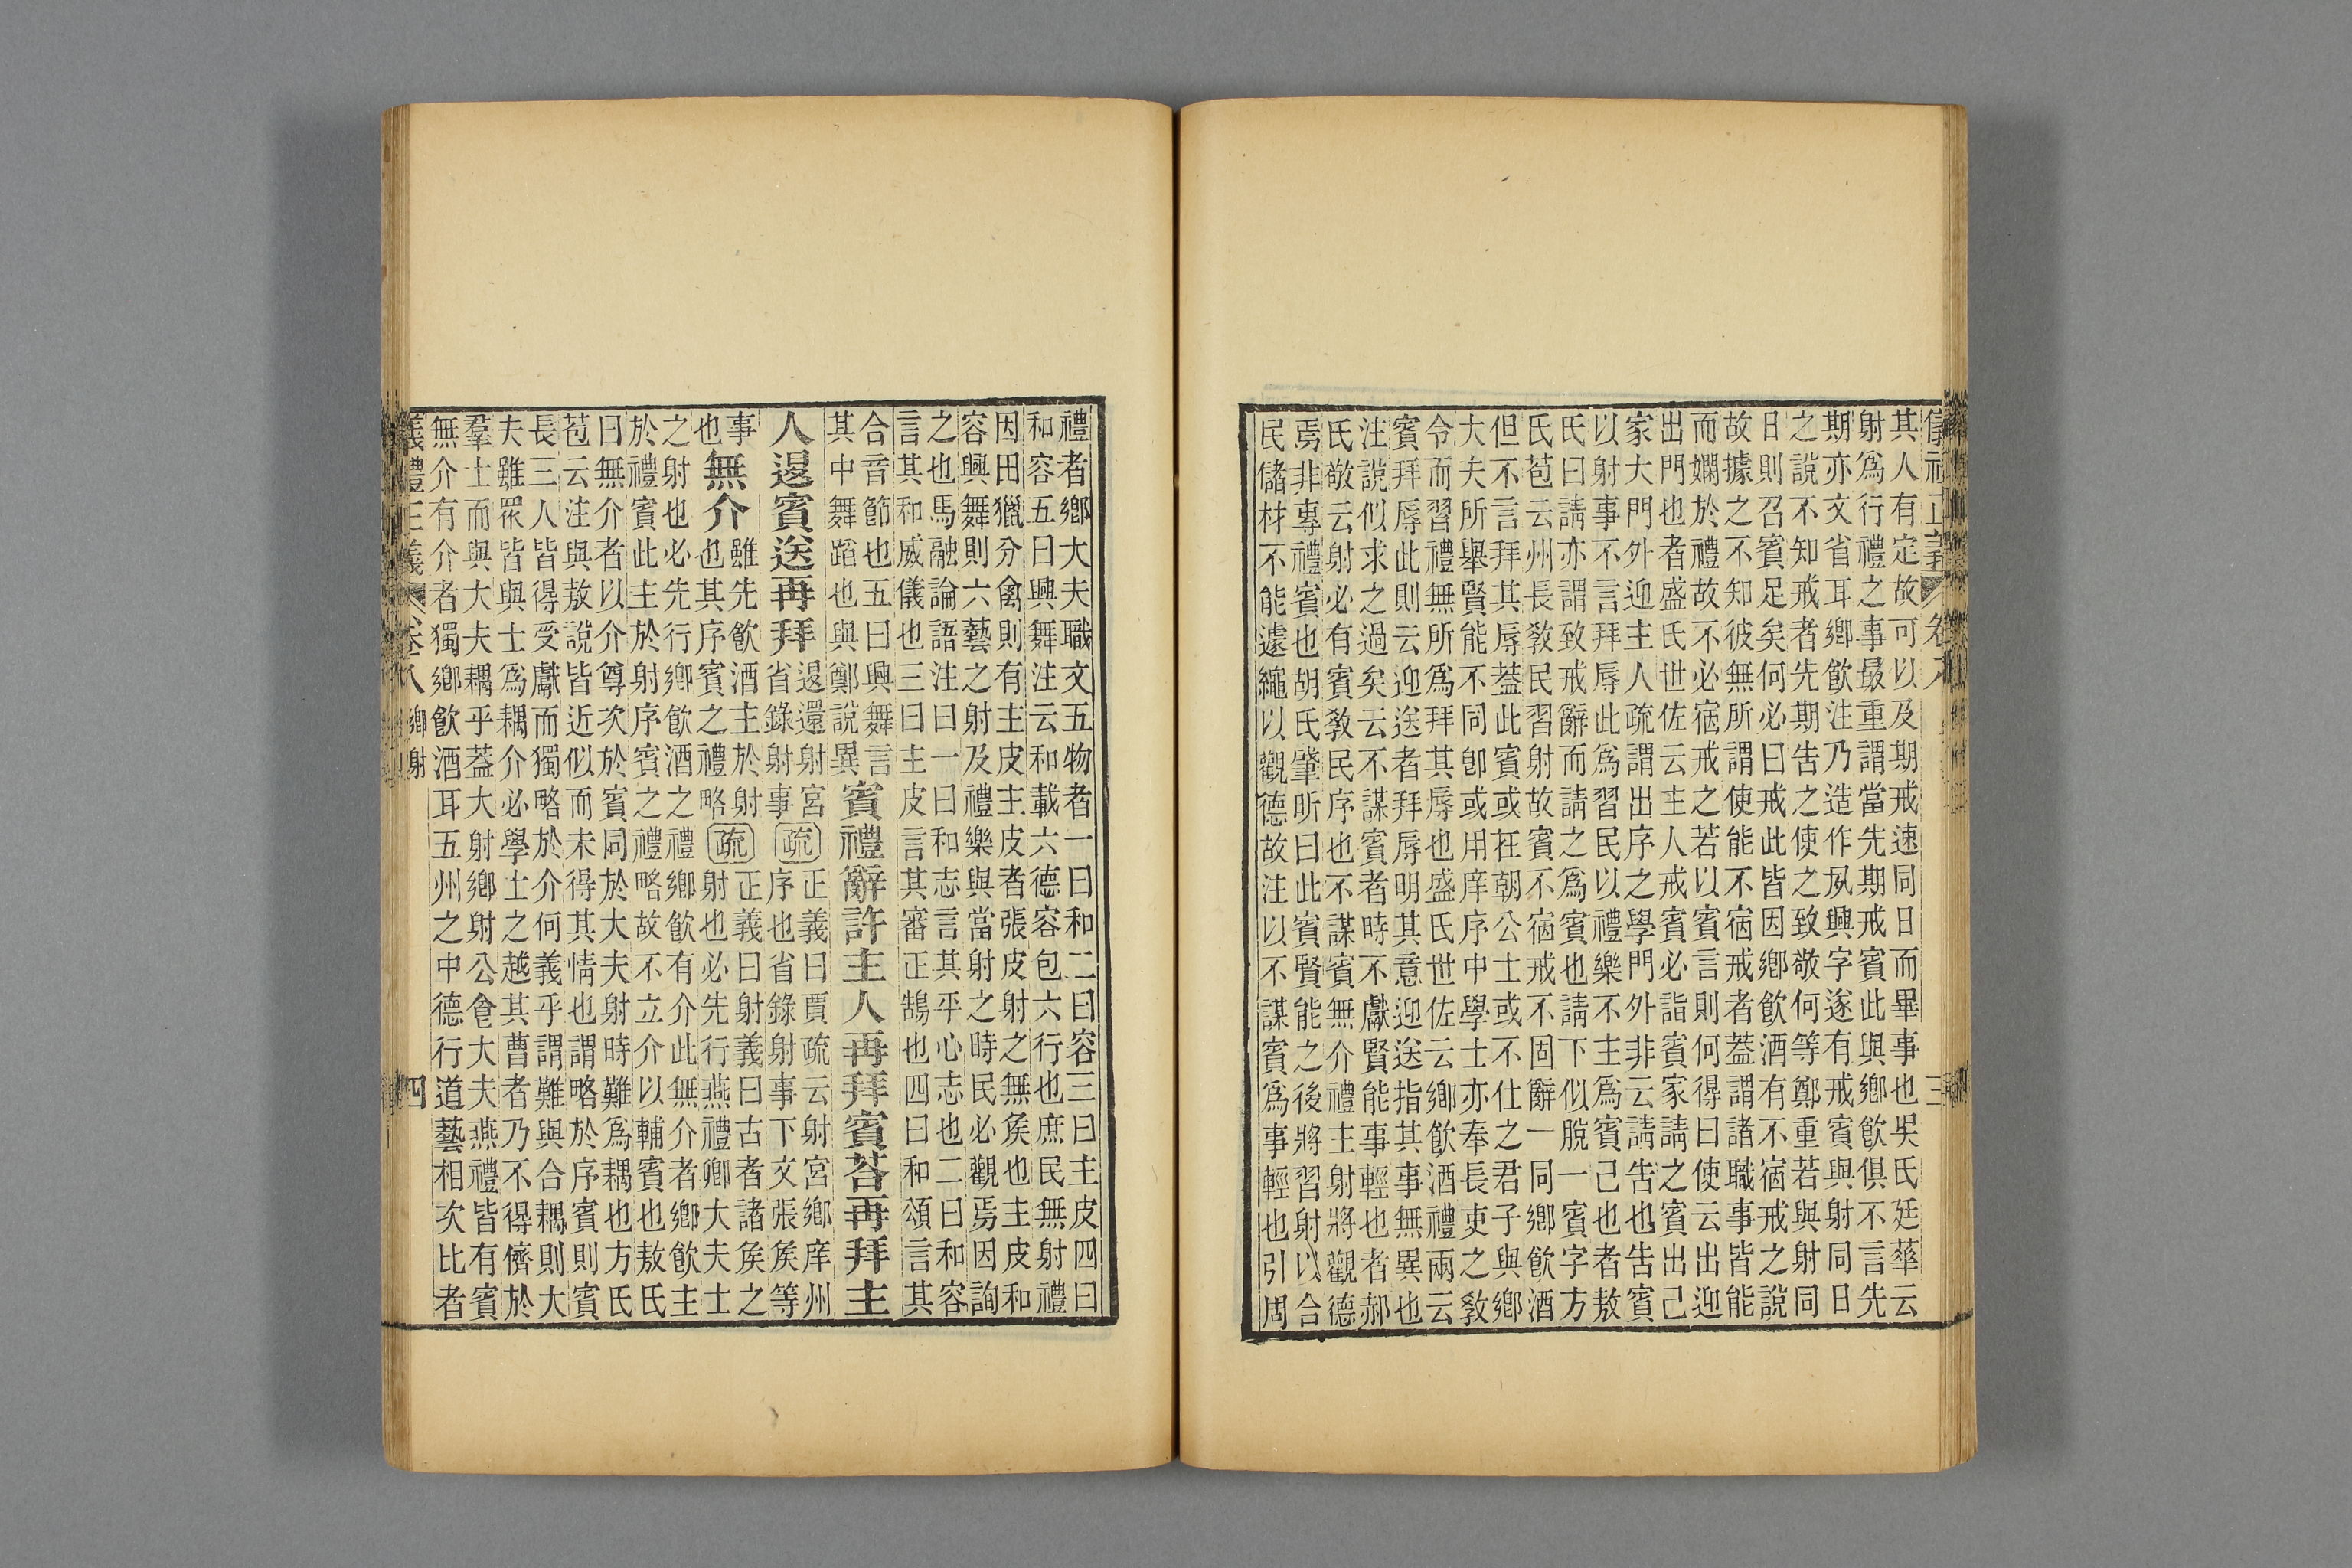 儀禮正義 卷八 三
其人有定故可以及期戒速同日而畢事也吳氏廷華云
射爲行禮之事最重謂當先期戒賓此與鄉飲俱不言先
期亦文省耳鄉飲注乃造作夙興字遂有戒賓與射同日
之說不知戒者先期告之使之致敬何等鄭重若與射同
日則召賓足矣何必曰戒此皆因鄉飲酒有不宿戒之說
故據之不知彼無所謂使能不宿戒者葢謂諸職事皆能
而嫻於禮故不必宿戒之若以賓言則何得曰使云出迎
出門也者盛氏世佐云主人戒賓必詣賓家請之賓出己
家大門外迎主人疏謂出序之學門外非云請告也告賓
以射事不言拜辱此爲習民以禮樂不主爲賓己也者敖
氏曰請亦謂致戒辭而請之爲賓也請下似脫一賓字方
氏苞云州長敎民習射故賓不宿戒不固辭一同鄉飲酒
但不言拜其辱葢此賓或在朝公士或不仕之君子與鄉
大夫所舉賢能不同卽或用庠序中學士亦奉長吏之敎
令而習禮無所爲拜其辱也盛氏世佐云鄉飲酒禮兩云
賓拜辱此則云迎送者拜辱明其意迎送指其事無異也
注說似求之過矣云不謀賓者時不獻賢能事輕也者郝
氏敬云射必有賓敎民序也不謀賓無介禮主射將觀德
焉非專禮賓也胡氏肇昕曰此賓賢能之後將習射以合
民儲材不能遽繩以觀德故注以不謀賓爲事輕也引周
禮者鄉大夫職文五物者一曰和二曰容三曰主皮四曰
和容五曰興舞注云和載六德容包六行也庶民無射禮
因田獵分禽則有主皮主皮者張皮射之無矦也主皮和
容興舞則六藝之射及禮樂與當射之時民必觀焉因詢
之也馬融論語注曰一曰和志言其平心志也二曰和容
言其和威儀也三曰主皮言其審正鵠也四曰和頌言其
合音節也五曰興舞言
其中舞蹈也與鄭說異
賓禮辭許主人再拜賓荅再拜主
人退賓送再拜
退還射宮
省錄射事
疏
正義曰賈疏云射宮鄉庠州
序也省錄射事下文張矦等
事
也
無介
雖先飲酒主於射
也其序賓之禮略
疏
正義曰射義曰古者諸矦之
射也必先行燕禮卿大夫士
之射也必先行鄉飲酒之禮鄉飲有介此無介者鄉飲主
於禮賓此主於射序賓之禮略故不立介以輔賓也敖氏
曰無介者以介尊次於賓同於大夫射時難爲耦也方氏
苞云注與敖說皆近似而未得其情也謂略於序賓則賓
長三人皆得受獻而獨略於介何義乎謂難與合耦則大
夫雖眾皆與士爲耦介必學士之越其曹者乃不得儕於
羣士而與大夫耦乎葢大射鄉射公食大夫燕禮皆有賓
無介有介者獨鄉飲酒耳五州之中德行道藝相次比者
儀禮正義 卷八 鄉射 四